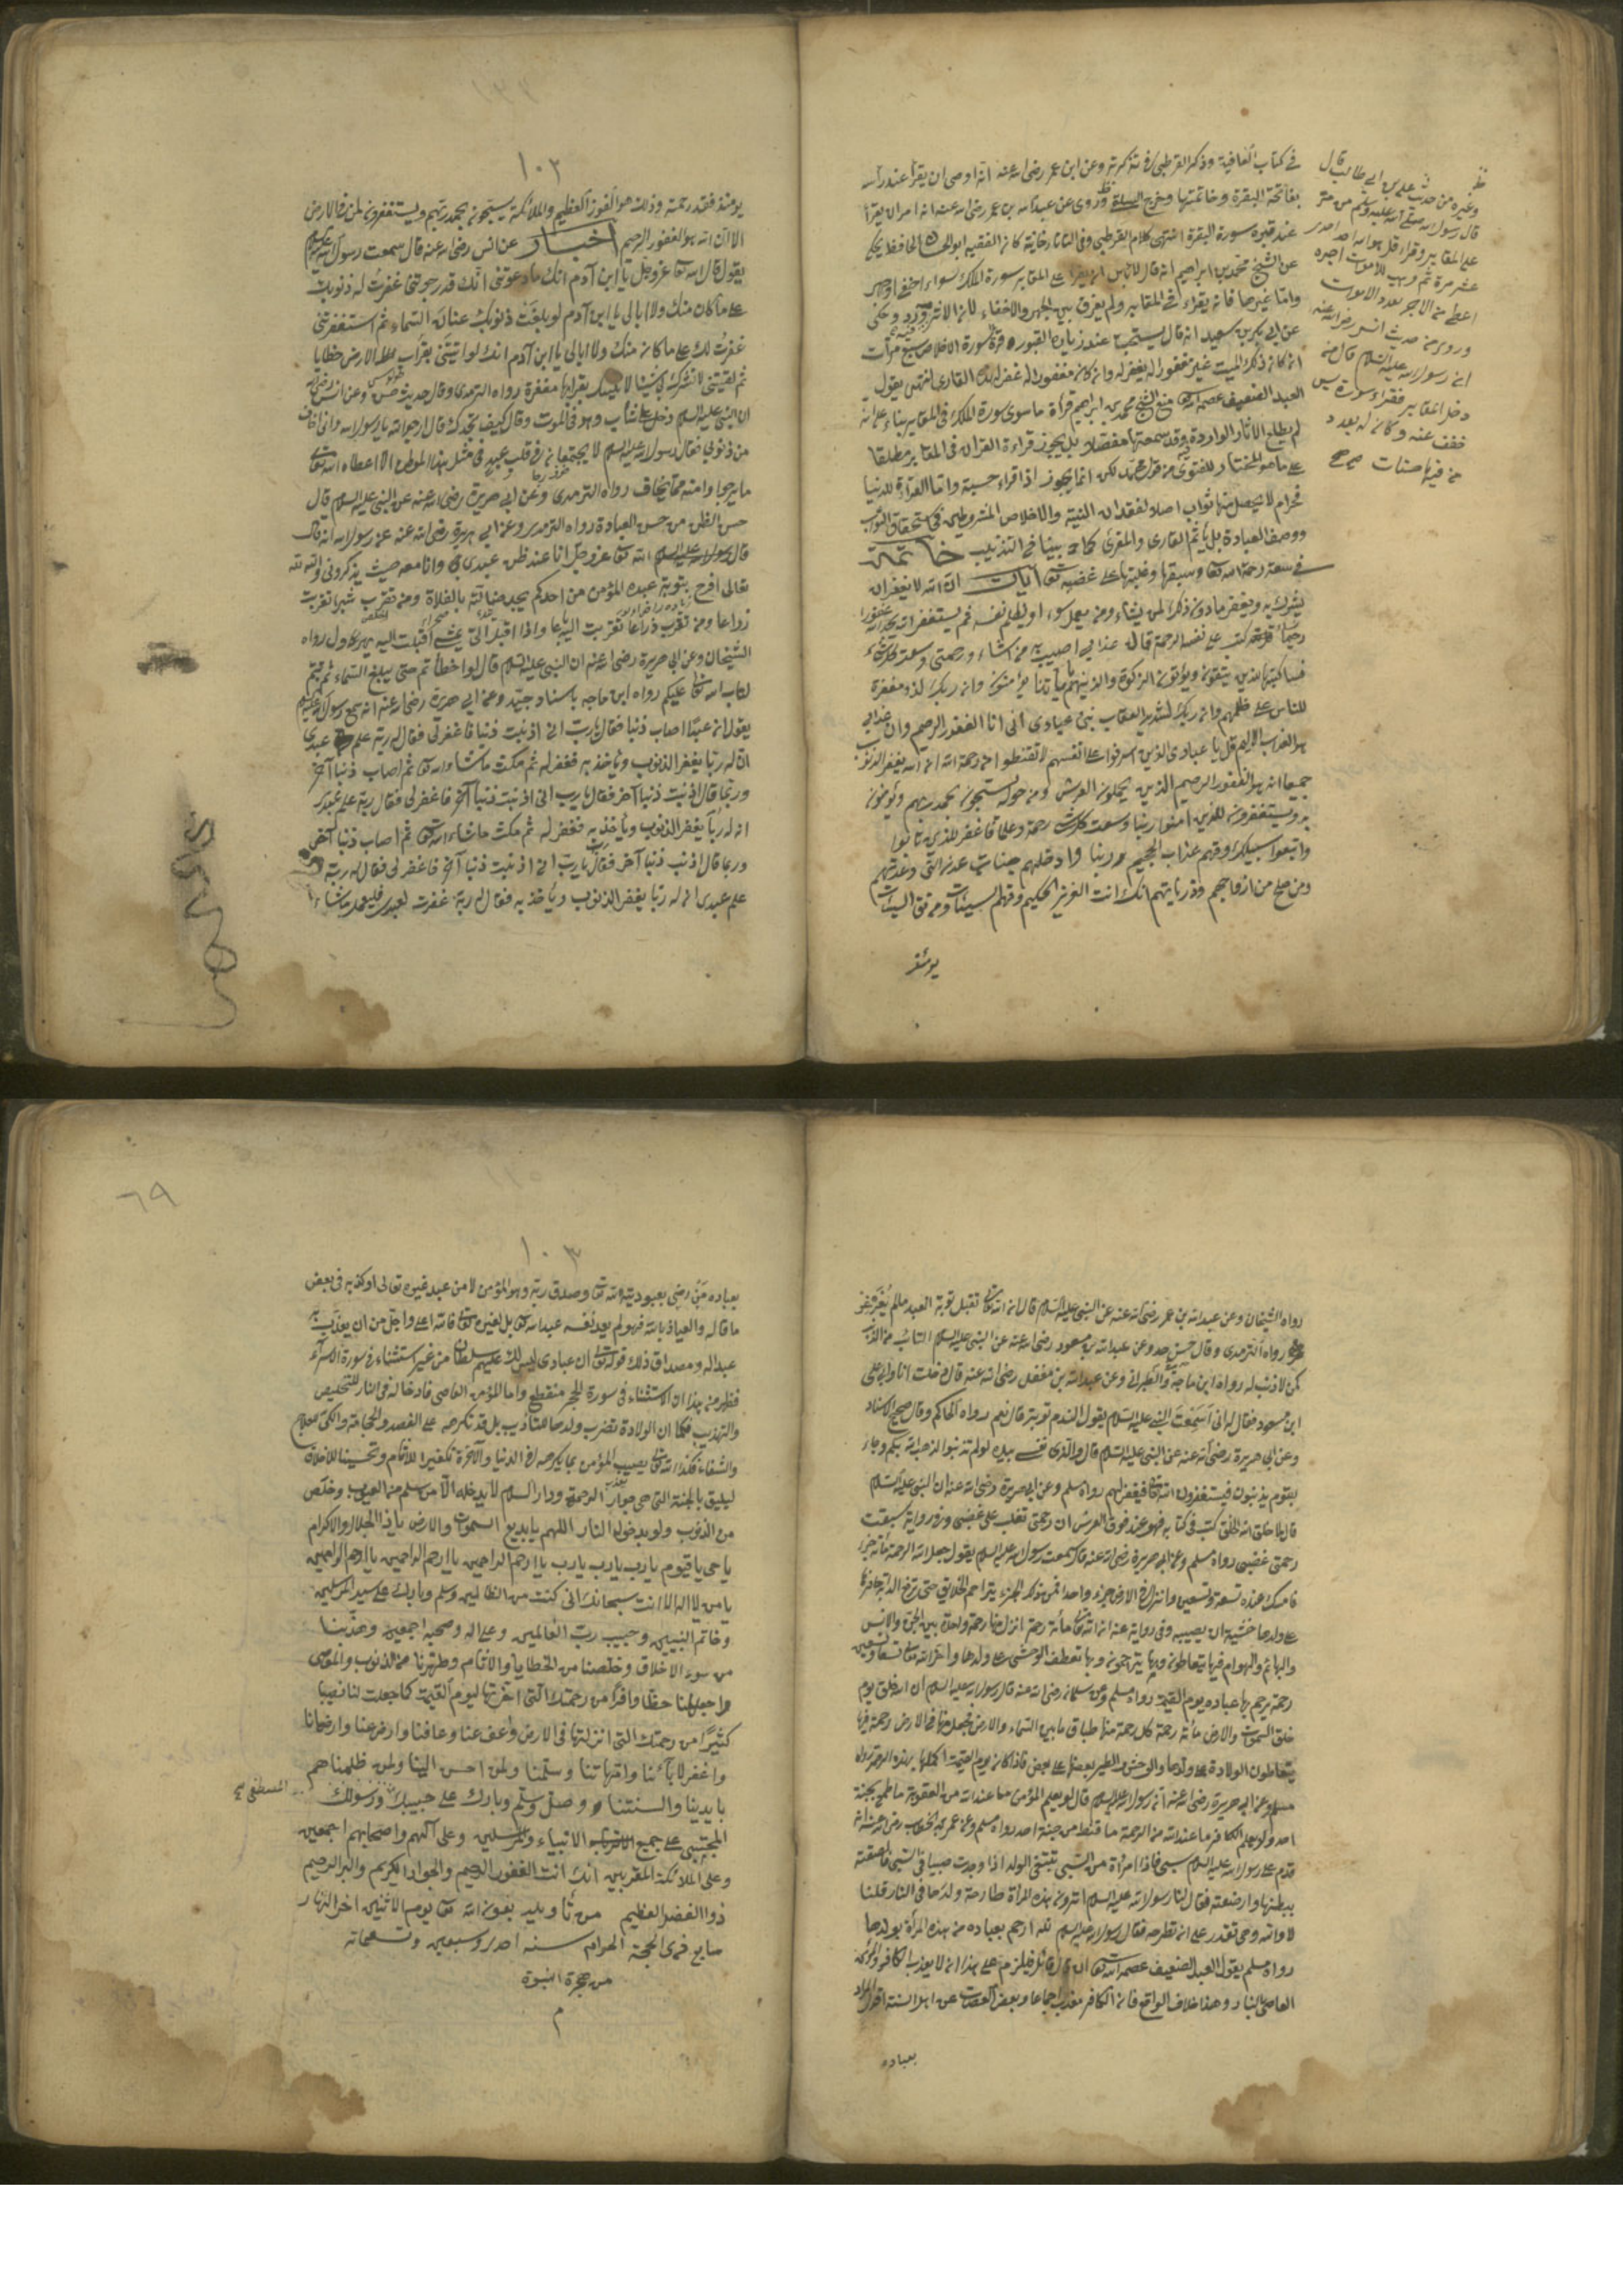 في كتاب العافية وذكره القرطبي في تذكرته وعن ابن عمر رضى الله عنه انه اوصى ان يقرأ عند رأسه
بفاتحة البقرة وخاتمتها وروى عن عبد الله بن عمر رضى الله عنه انه امر ان يقرأ
عند قبره سورة البقرة انتهى كلام القرطبي وفي التاتارخانية كان الفقيه ابو الحافظ يحكى
عن الشيخ محمد بن ابراهيم انه قال لا بأس ان يقرأ على المقابر سورة الملك سواء اخفى او جهر
واما غيرها فانه يقراء في المقابر ولم يفرق بين الجهر والاخفاء لان الاثر ورد وحكى
عن ابى بكر بن سعيد انه قال يستحب عند زيارة القبور قراءة سورة الاخلاص سبع مرات
انه كان ذلك الميت غير مغفور له يغفر له وان كان مغفورا له غفر لهذا القارى انتهى يقول
العبد الضعيف عصمه الله منع الشيخ محمد بن ابراهيم قراءة ما سوى سورة الملك في المقابر بناء على انه
لم يطلع الاثار الواردة فيه وقد سمعتها مفصلا بل يجوز قراءة القران في المقابر مطلقا
على ما هو المختار للفتوى من قول محمد لكن انما يجوز اذا قراء حسبة واما القراءة للدنيا
فحرام لا يحصل منها ثواب اصلا لفقدان النية والاخلاص المشروطين في استحقاق الثواب
ووصف العبادة بل يأثم القارى والمقرى كما بينا في التذنيب خاتمة
في سعة رحمة الله تعالى وسبقها وغلبتها على غضبه تعالى آيات ان الله لا يغفر ان
يشرك به ويغفر ما دون ذلك لمن يشاء ومن يعمل سوء او يظلم نفسه ثم يستغفر الله يجد الله غفورا
رحيما كتب على نفسه الرحمة قال عذابي اصيب به من اشاء ورحمتي وسعت كل شئ
فسأكتبها للذين يتقون ويؤتون الزكوة والذينهم بآياتنا يؤمنون وان ربك لذو مغفرة
للناس على ظلمهم وان ربك لشديد العقاب نبئ عبادى انى انا الغفور الرحيم وان عذابي
هو العذاب الاليم قل يا عبادى الذين اسرفوا على انفسهم لا تقنطوا من رحمة الله ان الله يغفر الذنوب
جميعا انه هو الغفور الرحيم الذين يحملون العرش ومن حوله يسبحون بحمد ربهم ويؤمنون
به ويستغفرون للذين امنوا ربنا وسعت كل شئ رحمة وعلما فاغفر للذين تابوا
واتبعوا سبيلك وقهم عذاب الجحيم ربنا وادخلهم جنات عدن التى وعدتهم
ومن صلح من ازواجهم وذرياتهم انك انت العزيز الحكيم وقهم السيئات ومن تق السيئات
يومئذ
وغيره من حديث على بن ابى طالب قال
قال رسول الله صلى الله عليه وسلم من مر
على المقابر وقراء قل هو الله احد احدى
عشر مرة ثم وهب للاموات اجره
اعطى من الاجر بعدد الاموات
وروى من حديث انس رضى الله عنه
ان رسول الله عليه السلام قال من
دخل المقابر فقراء سورة يس
خفف عنه وكان له بعدد
من فيها حسنات صح
١٠٢
يومئذ فقد رحمته وذلك هو الفوز العظيم والملائكة يسبحون بحمد ربهم ويستغفرون لمن في الارض
الا ان الله هو الغفور الرحيم اخبار عن انس رضى الله عنه قال سمعت رسول الله عليه السلام
يقول قال الله تعالى عز وجل يا ابن آدم انك ما دعوتنى انك قد رجوتنى غفرت له ذنوبك
على ما كان منك ولا ابالى يا ابن آدم لو بلغت ذنوبك عنان السماء ثم استغفرتنى
غفرت لك على ما كان منك ولا ابالى يا ابن آدم انك لو اتيتنى بقراب الارض خطايا
ثم لقيتنى لا تشرك بى شيئا لاتيتك بقرابها مغفرة رواه الترمذى وقال حديث حسن وعن انس رضى الله
ان النبى عليه السلام دخل على شاب وهو في الموت وقال كيف تجدك قال ارجو الله يا رسول الله وانى اخاف
من ذنوبى فقال رسول الله عليه السلام لا يجتمعان في قلب عبد في مثل هذا الموطن الا اعطاه الله تعالى
ما يرجو وامنه مما يخاف رواه الترمذى وعن ابى هريرة رضى الله عنه عن النبى عليه السلام قال
حسن الظن من حسن العبادة رواه الترمذى وعن ابى هريرة رضى الله عنه عن رسول الله انه قال
قال الله تعالى عز وجل انا عند ظن عبدى بى وانا معه حيث يذكرونى والله لله
تعالى افرح بتوبة عبده المؤمن من احدكم يجد ضالته بالفلاة ومن تقرب شبرا تقربت
ذراعا ومن تقرب ذراعا تقربت اليه باعا واذا اقبل الى يمشى اقبلت اليه يهرول رواه
الشيخان وعن ابى هريرة رضى الله عنه ان النبى عليه السلام قال لو اخطأتم حتى يبلغ السماء ثم تبتم
لتاب الله تعالى عليكم رواه ابن ماجه باسناد جيد وعن ابى هريرة رضى الله عنه انه سمع رسول الله عليه السلام
يقول ان عبدا اصاب ذنبا فقال يارب انى اذنبت ذنبا فاغفر لى فقال له ربه علم عبدى
ان له ربا يغفر الذنوب ويأخذ به فغفر له ثم مكث ما شاء الله تعالى ثم اصاب ذنبا آخر
وربما قال اذنبت ذنبا آخر فقال يا رب انى اذنبت ذنبا آخر فاغفر لى فقال ربه علم عبدى
ان له ربا يغفر الذنوب ويأخذ به فغفر له ثم مكث ما شاء الله تعالى ثم اصاب ذنبا آخر
وربما قال اذنب ذنبا آخر فقال يا رب انى اذنبت ذنبا آخر فاغفر لى فقال له ربه
علم عبدى ان له ربا يغفر الذنوب ويأخذ به فقال له ربه غفرت لعبدى فليعمل ما شاء
رواه الشيخان وعن عبد الله بن عمر رضى الله عنه عن النبى عليه السلام قال ان الله تعالى تقبل توبة العبد ما لم يغرغر
رواه الترمذى وقال حسن وعن عبد الله بن مسعود رضى الله عنه عن النبى عليه السلام التائب من الذنب
كمن لا ذنب له رواه ابن ماجه والطبرانى وعن عبد الله بن مغفل رضى الله عنه قال دخلت انا وابى على
ابن مسعود فقال له ابى اسمعت النبى عليه السلام يقول الندم توبة قال نعم رواه الحاكم وقال صحيح الاسناد
وعن ابى هريرة رضى الله عنه عن النبى عليه السلام قال والذى نفسى بيده لو لم تذنبوا لذهب الله بكم وجاء
بقوم يذنبون فيستغفرون الله تعالى فيغفر لهم رواه مسلم وعن ابى هريرة رضى الله عنه ان النبى عليه السلام
قال لما خلق الله الخلق كتب في كتابه فهو عنده فوق العرش ان رحمتى تغلب على غضبى وفي رواية سبقت
رحمتى غضبى رواه مسلم وعن ابى هريرة رضى الله عنه قال سمعت رسول الله عليه السلام يقول جعل الله الرحمة مأة جزء
فامسك عنده تسعة وتسعين وانزل في الارض جزء واحدا فمن ذلك الجزء يتراحم الخلايق حتى ترفع الدابة حافرها
على ولدها خشية ان يصيبه وفي رواية عنه ان لله تعالى مأة رحمة انزل منها رحمة واحدة بين الجن والانس
والبهائم والهوام فبها يتعاطفون وبها يتراحمون وبها تعطف الوحش على ولدها واخر الله تعالى تسعا وتسعين
رحمة يرحم بها عباده يوم القيمة رواه مسلم وعن سلمان رضى الله عنه قال رسول الله عليه السلام ان الله خلق يوم
خلق السموات والارض مأة رحمة كل رحمة منها طباق ما بين السماء والارض فجعل منها في الارض رحمة فبها
يتعاطفون الوالدة على ولدها والوحش والطير بعضها على بعض فاذا كان يوم القيمة اكملها بهذه الرحمة رواه
مسلم وعن ابى هريرة رضى الله عنه ان رسول الله عليه السلام قال لو يعلم المؤمن ما عند الله من العقوبة ما طمع بجنته
احد ولو يعلم الكافر ما عند الله من الرحمة ما قنط من جنته احد رواه مسلم وعن عمر بن الخطاب رضى الله عنه انه
قدم على رسول الله عليه السلام سبى فاذا امرأة من السبى تبتغى الولد اذا وجدت صبيا في السبى فالصقته
ببطنها وارضعته فقال لنا رسول الله عليه السلام اترون هذه المرأة طارحة ولدها في النار قلنا
لا والله وهى تقدر على ان تطرحه فقال رسول الله عليه السلام لله ارحم بعباده من هذه المرأة بولدها
رواه مسلم يقول العبد الضعيف عصمه الله تعالى ان قال قائل فيلزم على هذا انه لا يعذب الكافر والمؤمن
العاصى بالنار وهذا خلاف الواقع فان الكافر معذب اجماعا وبعض العصاة عن اهل السنة اقول المراد
بعباده
٦٩
١٠٣
بعباده من رضى بعبوديته الله تعالى وصدق ربه وهو المؤمن لا من عبد غيره تعالى او كذبه في بعض
ما قاله والعياذ بالله فهو لم يعد نفسه عبد الله تعالى بل لغيره تعالى فانه اعلى واجل من ان يعذب به
عبدا له ومصداق ذلك قوله تعالى ان عبادى ليس لك عليهم سلطان من غير استثناء في سورة الاسراء
فظهر منه بهذا ان الاستثناء في سورة الحجر منقطع واما المؤمن العاصى فادخاله في النار للتخليص
والتهذيب فكما ان الوالدة تضرب ولدها للتأديب بل قد تكرهه على الفصد والحجامة والكى للعلاج
والشفاء فكذا الله تعالى يصيب المؤمن بما يكرهه في الدنيا والآخرة تكفيرا للاثام وتحسينا للاخلاق
ليليق بالجنة التى هى جوار الرحمة ودار السلام لا يدخله الا من سلم من العيوب وخلص
من الذنوب ولو بدخول النار اللهم يا بديع السموات والارض يا ذا الجلال والاكرام
يا حى يا قيوم يا رب يا رب يا رب يا ارحم الراحمين يا ارحم الراحمين يا ارحم الراحمين
يا من لا اله الا انت سبحانك انى كنت من الظالمين وسلم وبارك على سيد المرسلين
وخاتم النبيين وحبيب رب العالمين وعلى اله وصحبه اجمعين وهذبنا
من سوء الاخلاق وخلصنا من الخطايا والاثام وطهرنا من الذنوب والمعاصى
واجعل لنا حظا وافرا من رحمتك التى اخرتها ليوم القيمة كما جعلت لنا نصيبا
كثيرا من رحمتك التى انزلتها في الارض واعف عنا وعافنا وارض عنا وارضانا
واغفر لآبائنا وامهاتنا وسلمنا ولمن احسن الينا ولمن ظلمناهم
بايدينا والسنتنا وصل وسلم وبارك على حبيبك ورسولك
المصطفى صح
المجتبى على جميع الانبياء والمرسلين وعلى آلهم واصحابهم اجمعين
وعلى الملائكة المقربين انك انت الغفور الرحيم والجواد الكريم والبر الرحيم
ذوا الفضل العظيم من تأويله بعون الله تعالى يوم الاثنين اخر النهار
سابع ذى الحجة الحرام سنه احدى وسبعين وتسعمائه
من هجرة النبوة
م